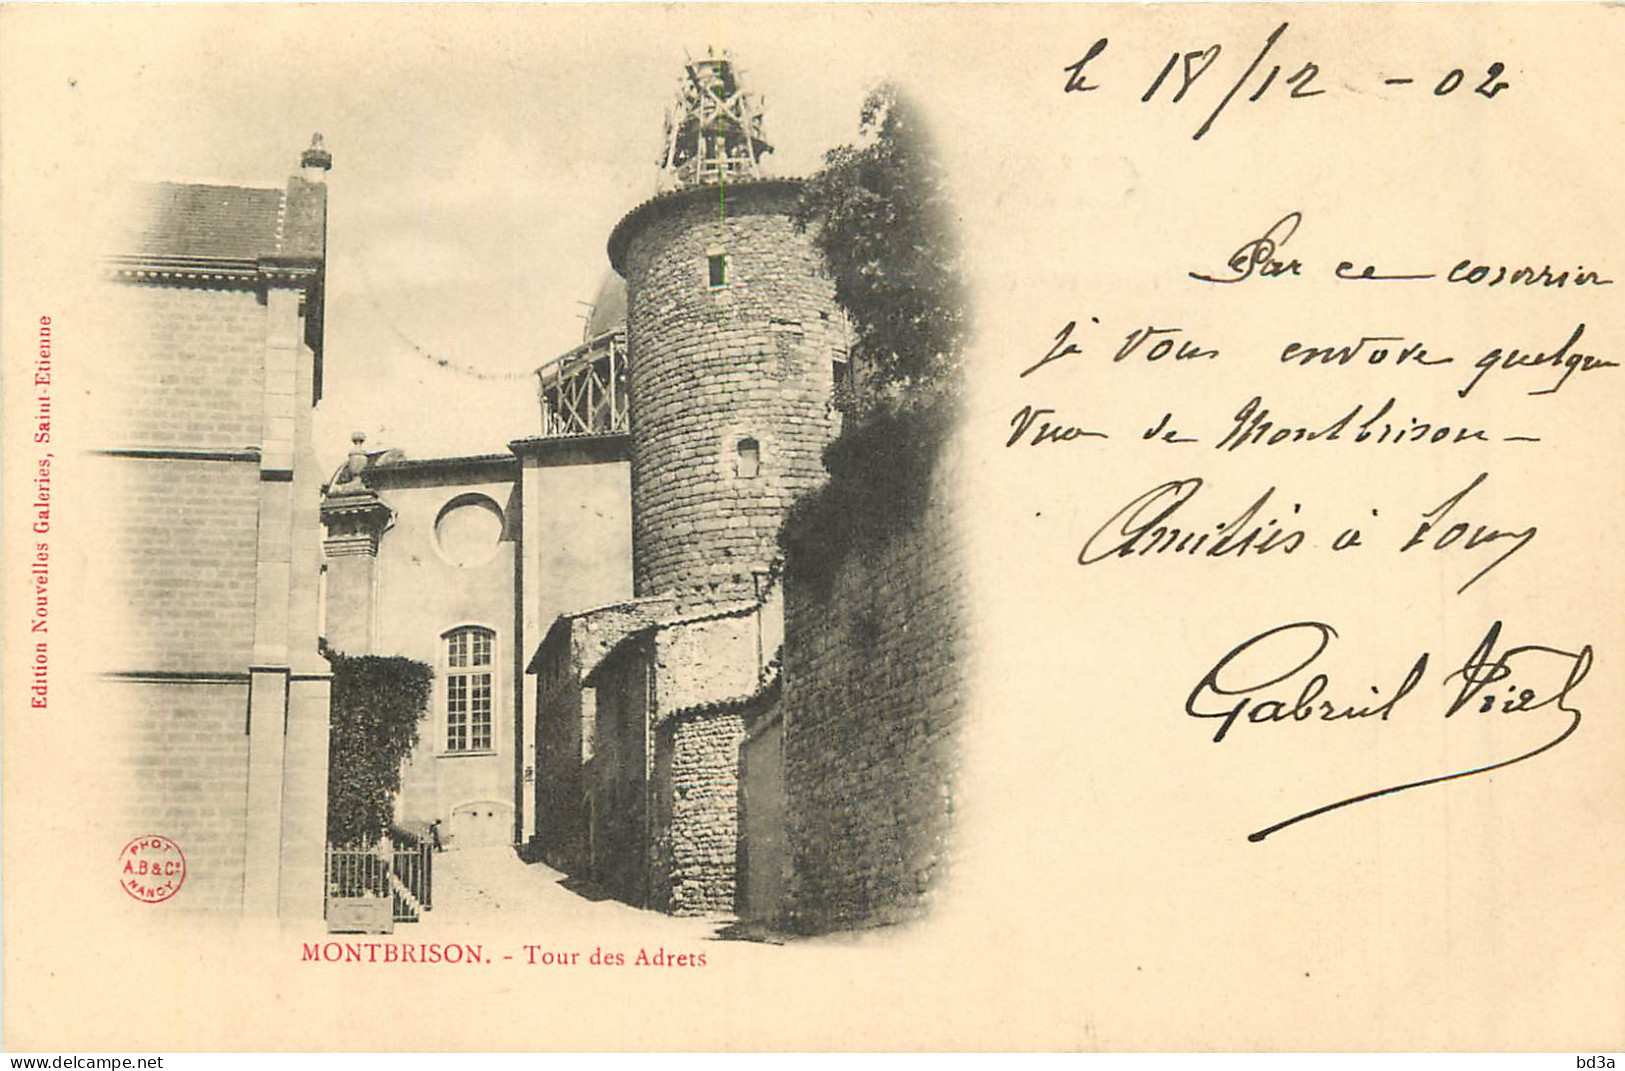 le 18/12 - 02
Par ce courrier
je vous envoie quelque
vue de Montbrison -
Amitiés à tous
Gabriel Viel
Edition Nouvelles Galeries, Saint-Etienne
PHOT
A.B & Cº
NANCY
MONTBRISON. - Tour des Adrets
www.delcampe.net
bd3a